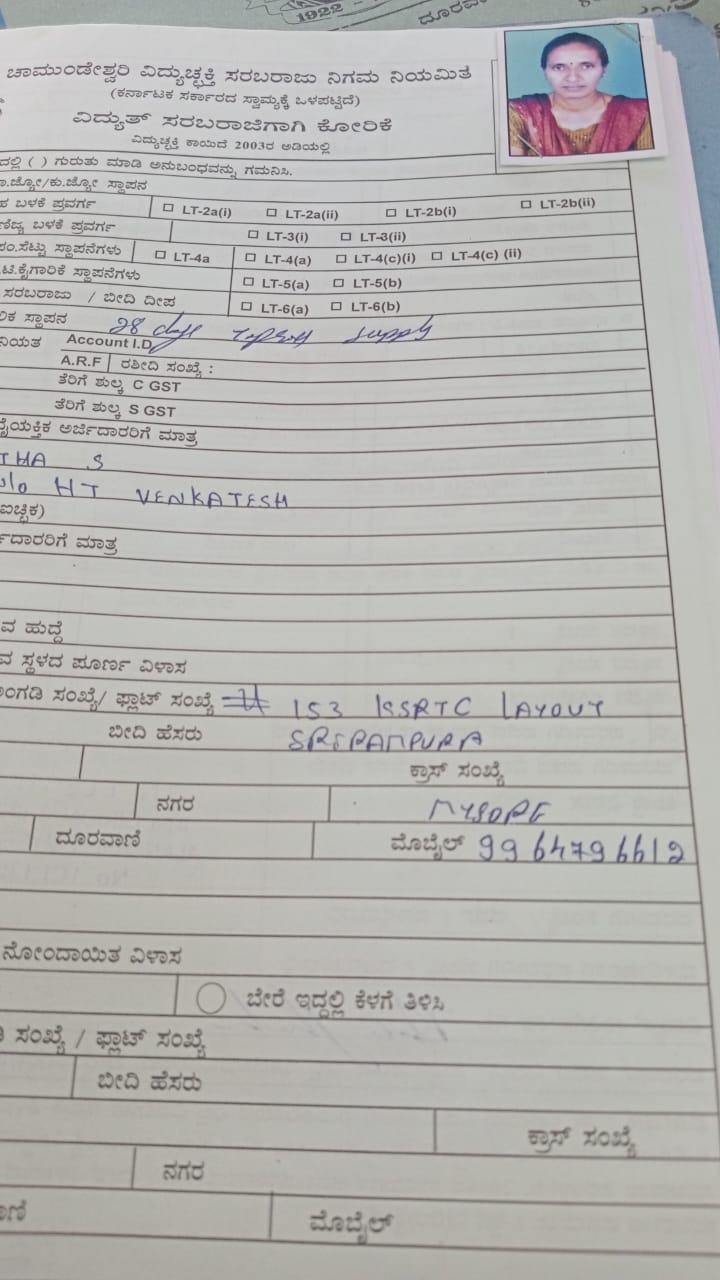 1922
ದೂರವಾ
ಚಾಮುಂಡೇಶ್ವರಿ ವಿದ್ಯುಚ್ಛಕ್ತಿ ಸರಬರಾಜು ನಿಗಮ ನಿಯಮಿತ
(ಕರ್ನಾಟಕ ಸರ್ಕಾರದ ಸ್ವಾಮ್ಯಕ್ಕೆ ಒಳಪಟ್ಟಿದೆ)
ವಿದ್ಯುತ್ ಸರಬರಾಜಿಗಾಗಿ ಕೋರಿಕೆ
ವಿದ್ಯುಚ್ಛಕ್ತಿ ಕಾಯಿದೆ 2003ರ ಅಡಿಯಲ್ಲಿ
ದಲ್ಲಿ ( ) ಗುರುತು ಮಾಡಿ ಅನುಬಂಧವನ್ನು ಗಮನಿಸಿ.
ಾ.ಜ್ಯೋ/ಕು.ಜ್ಯೋ ಸ್ಥಾಪನ
ಬಳಕೆ ಪ್ರವರ್ಗ LT-2a(i) LT-2a(ii) LT-2b(i) LT-2b(ii)
ಬಳಕೆ ಪ್ರವರ್ಗ LT-3(i) LT-3(ii)
ಸಂ.ಸೆಟ್ಟು ಸ್ಥಾಪನೆಗಳು LT-4a LT-4(a) LT-4(c)(i) LT-4(c) (ii)
.ಟಿ.ಕೈಗಾರಿಕೆ ಸ್ಥಾಪನೆಗಳು LT-5(a) LT-5(b)
ಸರಬರಾಜು / ಬೀದಿ ದೀಪ LT-6(a) LT-6(b)
ಲಿಕ ಸ್ಥಾಪನ 28 days supply
ನಿಯತ Account I.D
A.R.F ರಶೀದಿ ಸಂಖ್ಯೆ :
ತೆರಿಗೆ ಶುಲ್ಕ C GST
ತೆರಿಗೆ ಶುಲ್ಕ S GST
ವೈಯಕ್ತಿಕ ಅರ್ಜಿದಾರರಿಗೆ ಮಾತ್ರ
THA S
w/o HT VENKATESH
ಐಚ್ಛಿಕ)
ರ್ಜಿದಾರರಿಗೆ ಮಾತ್ರ
ವ ಹುದ್ದೆ
ವ ಸ್ಥಳದ ಪೂರ್ಣ ವಿಳಾಸ
ಅಂಗಡಿ ಸಂಖ್ಯೆ/ ಫ್ಲಾಟ್ ಸಂಖ್ಯೆ # 153 KSRTC LAYOUT
ಬೀದಿ ಹೆಸರು SRIRAMPURA
ಕ್ರಾಸ್ ಸಂಖ್ಯೆ
ನಗರ MYSORE
ದೂರವಾಣಿ ಮೊಬೈಲ್ 9964796612
ನೋಂದಾಯಿತ ವಿಳಾಸ
ಬೇರೆ ಇದ್ದಲ್ಲಿ ಕೆಳಗೆ ತಿಳಿಸಿ
ಸಂಖ್ಯೆ / ಫ್ಲಾಟ್ ಸಂಖ್ಯೆ
ಬೀದಿ ಹೆಸರು
ಕ್ರಾಸ್ ಸಂಖ್ಯೆ
ನಗರ
ಾಣಿ ಮೊಬೈಲ್